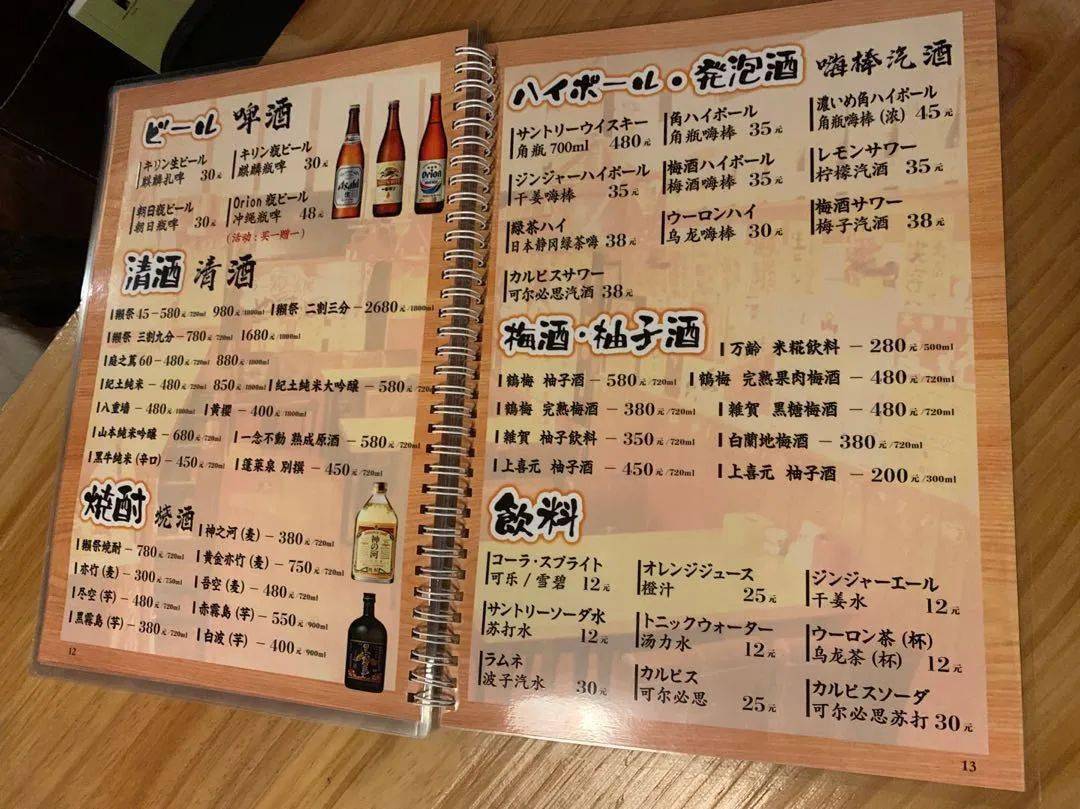 ビール 啤酒
キリン生ビール
麒麟扎啤 30元
キリン瓶ビール
麒麟瓶啤 30元
朝日瓶ビール
朝日瓶啤 30元
Orion 瓶ビール
冲绳瓶啤 48元
(活动:买一赠一)
Asahi
Orion
清酒 清酒
獺祭 45-580元/720ml 980元/1800ml
獺祭 二割三分-2680元/1800ml
獺祭 三割九分-780元/720ml 1680元/1800ml
庭之莺 60-480元/720ml 880元/1800ml
紀土純米-480元/720ml 850元/1800ml
紀土純米大吟醸-580元/720ml
八重墙-480元/1800ml
黄櫻-400元/1800ml
山本純米吟醸-680元/720ml
一念不動 熟成原酒-580元/720ml
黒牛純米(辛口)-450元/720ml
蓬莱泉 別撰-450元/720ml
焼酎 烧酒
神之河(麦)-380元/720ml
獺祭焼酎-780元/720ml
黄金亦竹(麦)-750元/720ml
亦竹(麦)-300元/750ml
吾空(麦)-480元/720ml
尽空(芋)-480元/720ml
赤霧島(芋)-550元/900ml
黒霧島(芋)-380元/720ml
白波(芋)-400元/900ml
神の河
12
ハイボール・発泡酒 嗨棒汽酒
サントリーウイスキー
角瓶 700ml 480元
角ハイボール
角瓶嗨棒 35元
濃いめ角ハイボール
角瓶嗨棒(浓) 45元
ジンジャーハイボール
干姜嗨棒 35元
梅酒ハイボール
梅酒嗨棒 35元
レモンサワー
柠檬汽酒 35元
緑茶ハイ
日本静冈绿茶嗨 38元
ウーロンハイ
乌龙嗨棒 30元
梅酒サワー
梅子汽酒 38元
カルピスサワー
可尔必思汽酒 38元
梅酒・柚子酒
万齢 米糀飲料-280元/500ml
鶴梅 柚子酒-580元/720ml
鶴梅 完熟果肉梅酒-480元/720ml
鶴梅 完熟梅酒-380元/720ml
雑賀 黒糖梅酒-480元/720ml
雑賀 柚子飲料-350元/720ml
白蘭地梅酒-380元/720ml
上喜元 柚子酒-450元/720ml
上喜元 柚子酒-200元/300ml
飲料
コーラ・スプライト
可乐/雪碧 12元
オレンジジュース
橙汁 25元
ジンジャーエール
干姜水 12元
サントリーソーダ水
苏打水 12元
トニックウォーター
汤力水 12元
ウーロン茶(杯)
乌龙茶(杯) 12元
ラムネ
波子汽水 30元
カルピス
可尔必思 25元
カルピスソーダ
可尔必思苏打 30元
13